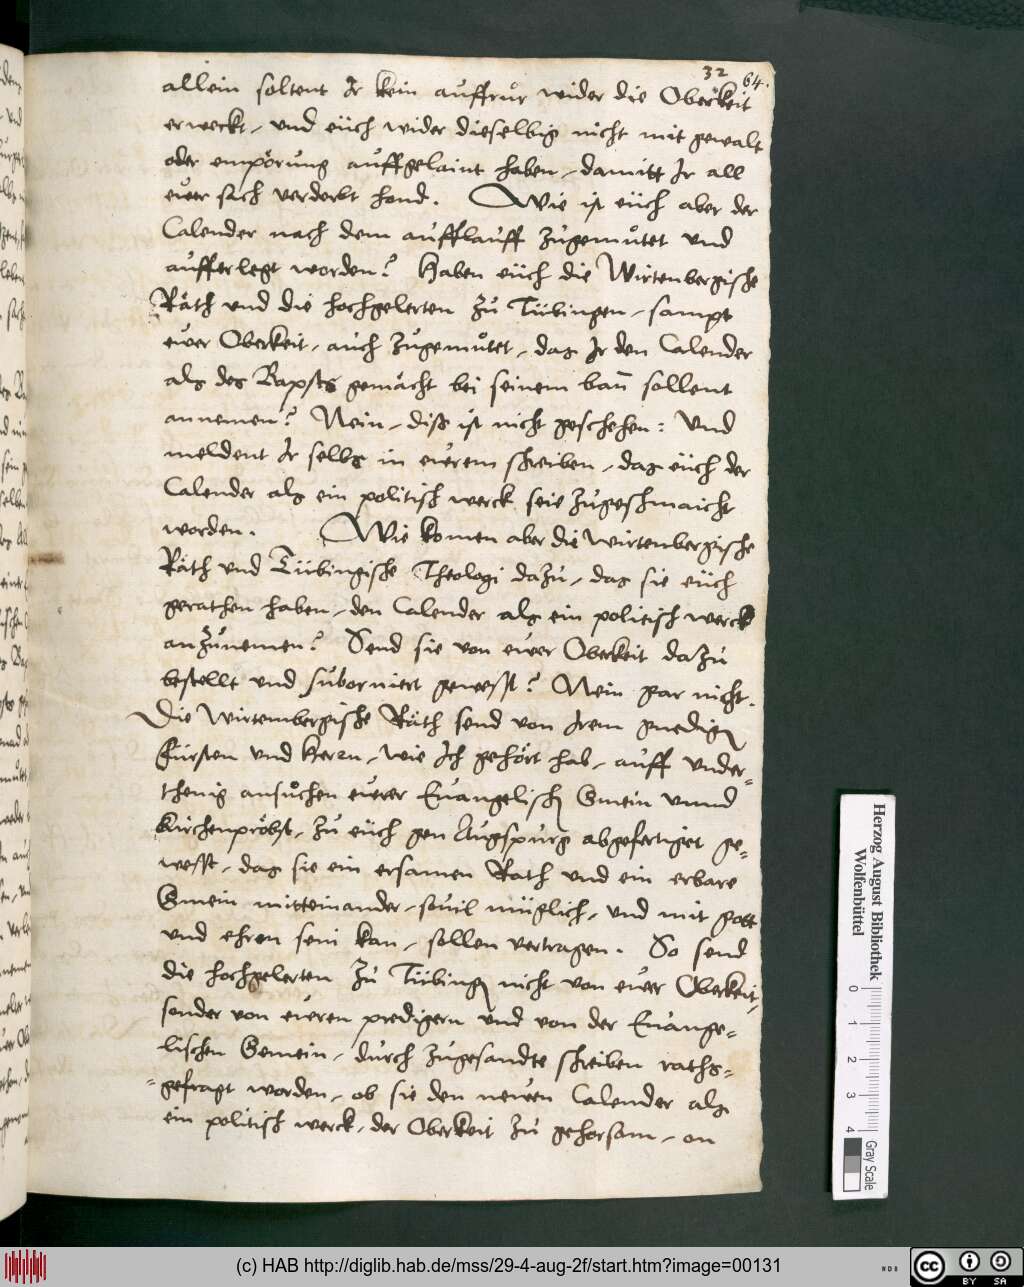 32 64.
allein soltent Ir kein auffrůr wider die Oberkeit
erweckt, und euch wider dieselbig nicht mit gewalt
oder empörung auffgelaint haben, damitt Ir all
ewer sach verderbt hond. Wie ist euch aber der
Calender nach dem aufflauff zůgemůtet und
aufferlegt worden? Haben euch die Wirtenbergische
Räth und die hochgelerten zů Tübingen, sampt
ewer Oberkeit, auch zůgemůtet, das Ir den Calender
als des Bapsts gemächt bei seinem bann sollent
annemen? Nein, diß ist nicht geschehen: Und
meldent Ir selbs in ewerem schreiben, das euch der
Calender als ein politisch werck seie zůgeschmaicht
worden. Wie komen aber die wirtenbergische
Räth und Tübingische Theologi dazů, das sie euch
gerathen haben, den Calender als ein politisch werck
anzůnemen? Send sie von ewer Oberkeit dazů
bestellt und suborniert gewesst? Nein gar nicht.
Die Wirtembergische Räth send von Irem gnedigen
Fürsten und Herrn, wie Ich gehört hab, auff under-
thenig ansůchen ewerer Euangelischen Gmein unnd
Kirchenpröbst, zů euch gen Augspurg abgefertiget ge-
wesst, das sie ein ersamen Rath und ein erbare
Gmein mitteinander, souil müglich, und mit gott
und ehren sein kan, sollen vertragen. So send
die hochgelerten zů Tübingen nicht von ewer Oberkeit,
sonder von eweren predigern und von der Euange-
lischen Gemein, durch zůgesandte schreiben raths-
gefragt worden, ob sie den newen Calender als
ein politisch werck, der Oberkeit zů gehorsam, on
Herzog August Bibliothek
Wolfenbüttel
0 1 2 3 4
Gray Scale
(c) HAB http://diglib.hab.de/mss/29-4-aug-2f/start.htm?image=00131
WDB
cc
BY SA